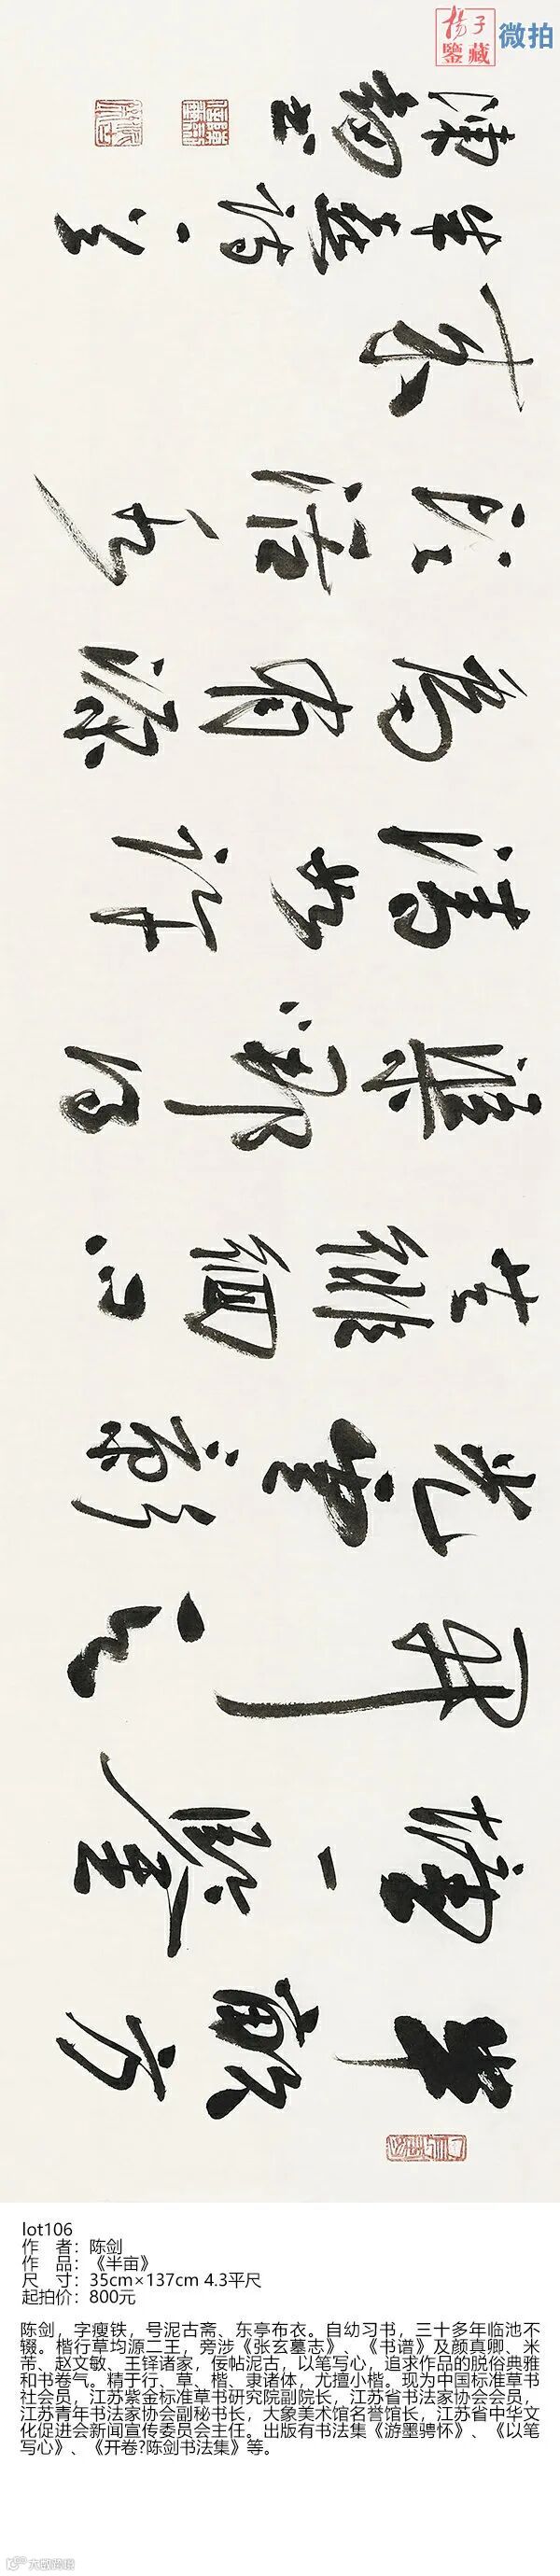 揚子
鑒藏
微拍
半畝方
塘一鑒
开天
光雲影
共徘徊问
渠那得
清如許
為有源
頭活水
来
朱熹诗一首
陳劍书
lot106
作　者：陈剑
作　品：《半亩》
尺　寸：35cm×137cm 4.3平尺
起拍价：800元
陈剑，字瘦铁，号泥古斋、东亭布衣。自幼习书，三十多年临池不
辍。楷行草均源二王，旁涉《张玄墓志》、《书谱》及颜真卿、米
芾、赵文敏、王铎诸家，佞帖泥古，以笔写心，追求作品的脱俗典雅
和书卷气。精于行、草、楷、隶诸体，尤擅小楷。现为中国标准草书
社会员，江苏紫金标准草书研究院副院长，江苏省书法家协会会员，
江苏青年书法家协会副秘书长，大象美术馆名誉馆长，江苏省中华文
化促进会新闻宣传委员会主任。出版有书法集《游墨骋怀》、《以笔
写心》、《开卷?陈剑书法集》等。